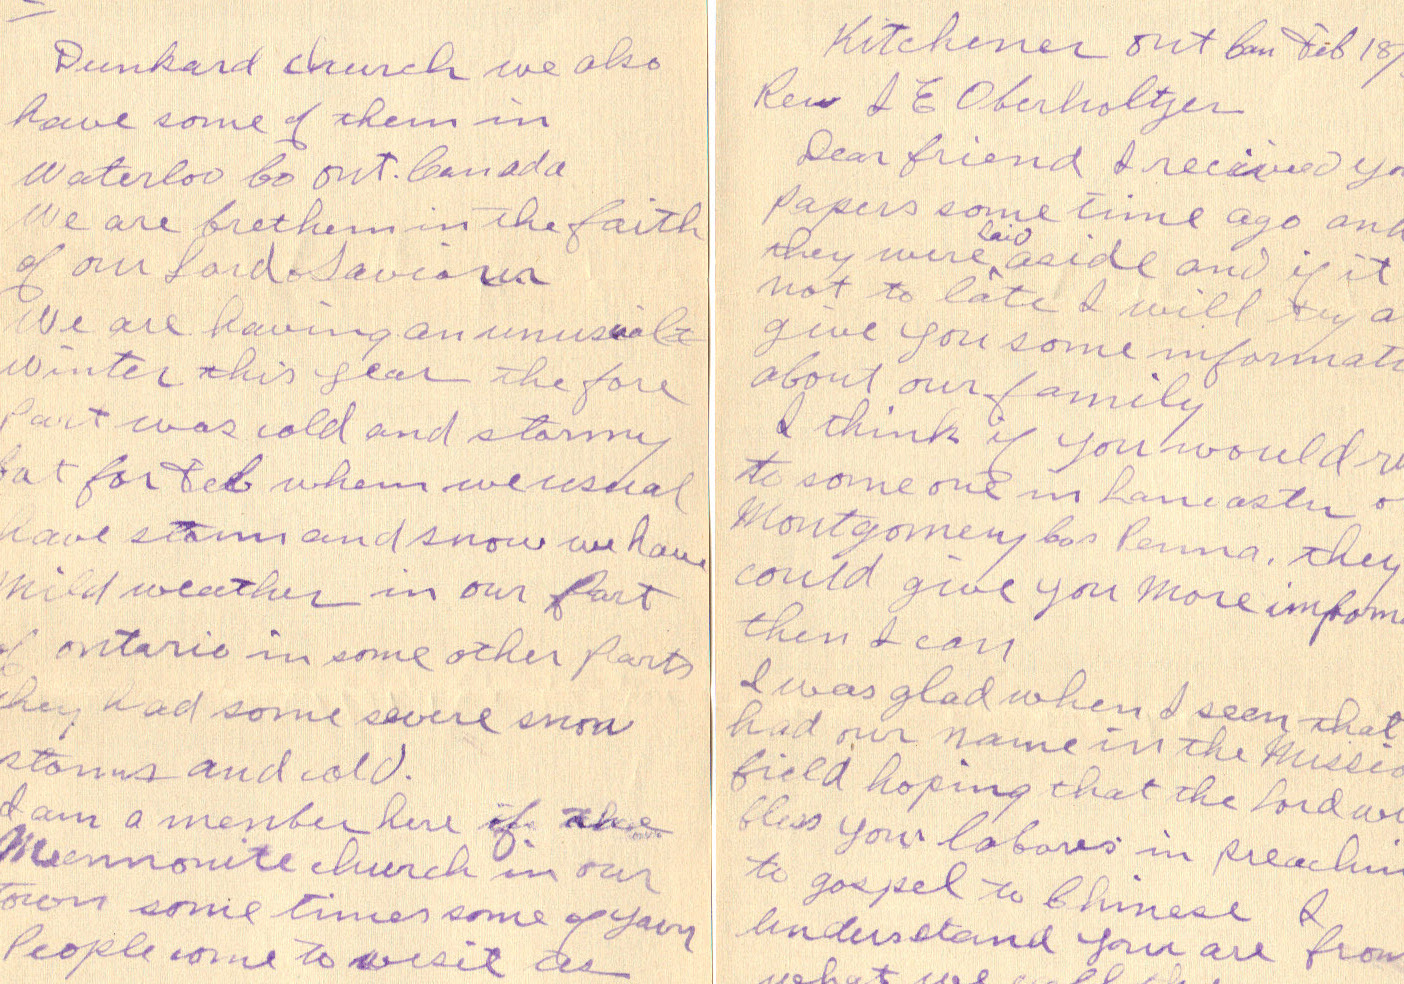 Kitchener Ont Can Feb 18/
Rev I E Oberholtzer
Dear friend I received yo
papers some time ago and
they were laid aside and if it
not to late I will try a
give you some informati
about our family
I think if you would
to some one in Lancaster o
Montgomery Cos Penna. they
could give you more imforma
then I can
I was glad when I seen that
had our name in the Missio
field hoping that the Lord wi
bless your labores in preachin
to gospel to Chinese I
understand you are from
what we call the
Dunkard church we also
have some of them in
Waterloo Co Ont. Canada
We are brethern in the faith
of our Lord & Saviour
We are having an unusial
winter this year the fore
part was cold and stormy
but for Feb when we usual
have storm and snow we have
mild weather in our part
of ontario in some other parts
they had some severe snow
storms and cold.
I am a member here if the
Mennonite church in our
town some times some of your
People come to visit us